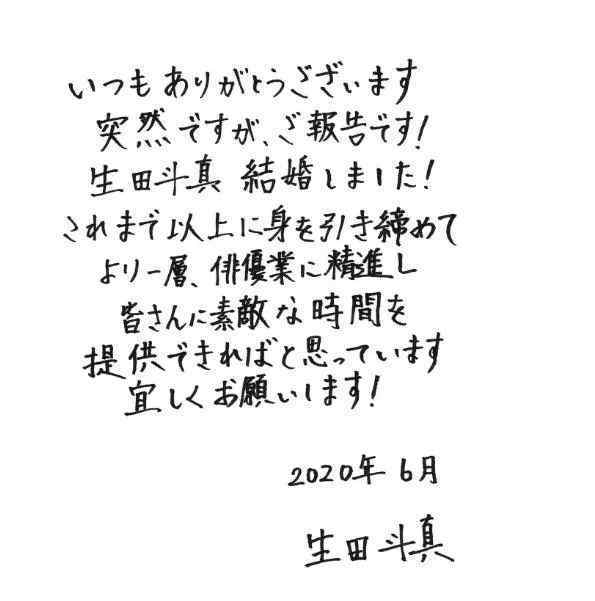 いつもありがとうございます
突然ですが、ご報告です！
生田斗真 結婚しました！
これまで以上に身を引き締めて
より一層、俳優業に精進し
皆さんに素敵な時間を
提供できればと思っています
宜しくお願いします！
2020年 6月
生田斗真